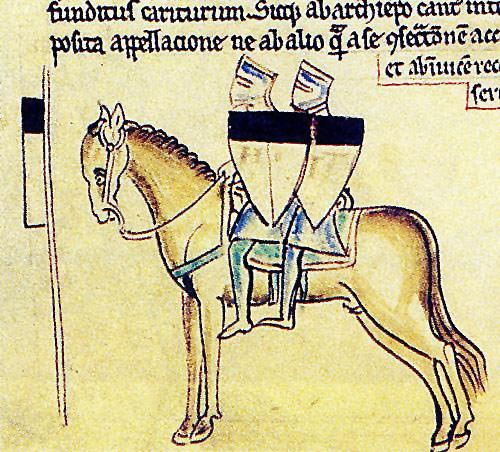 funditus cariturum. Sicqꝫ ab archiepo cant int
posita appellacione ne ab alio qͣ̄ a se ꝯsec̃tōnē acc
et abīuicē rec